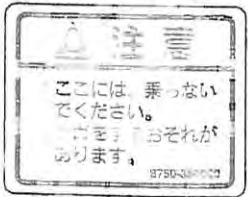 注意
ここには、乗らない
でください。
おそれが
あります。